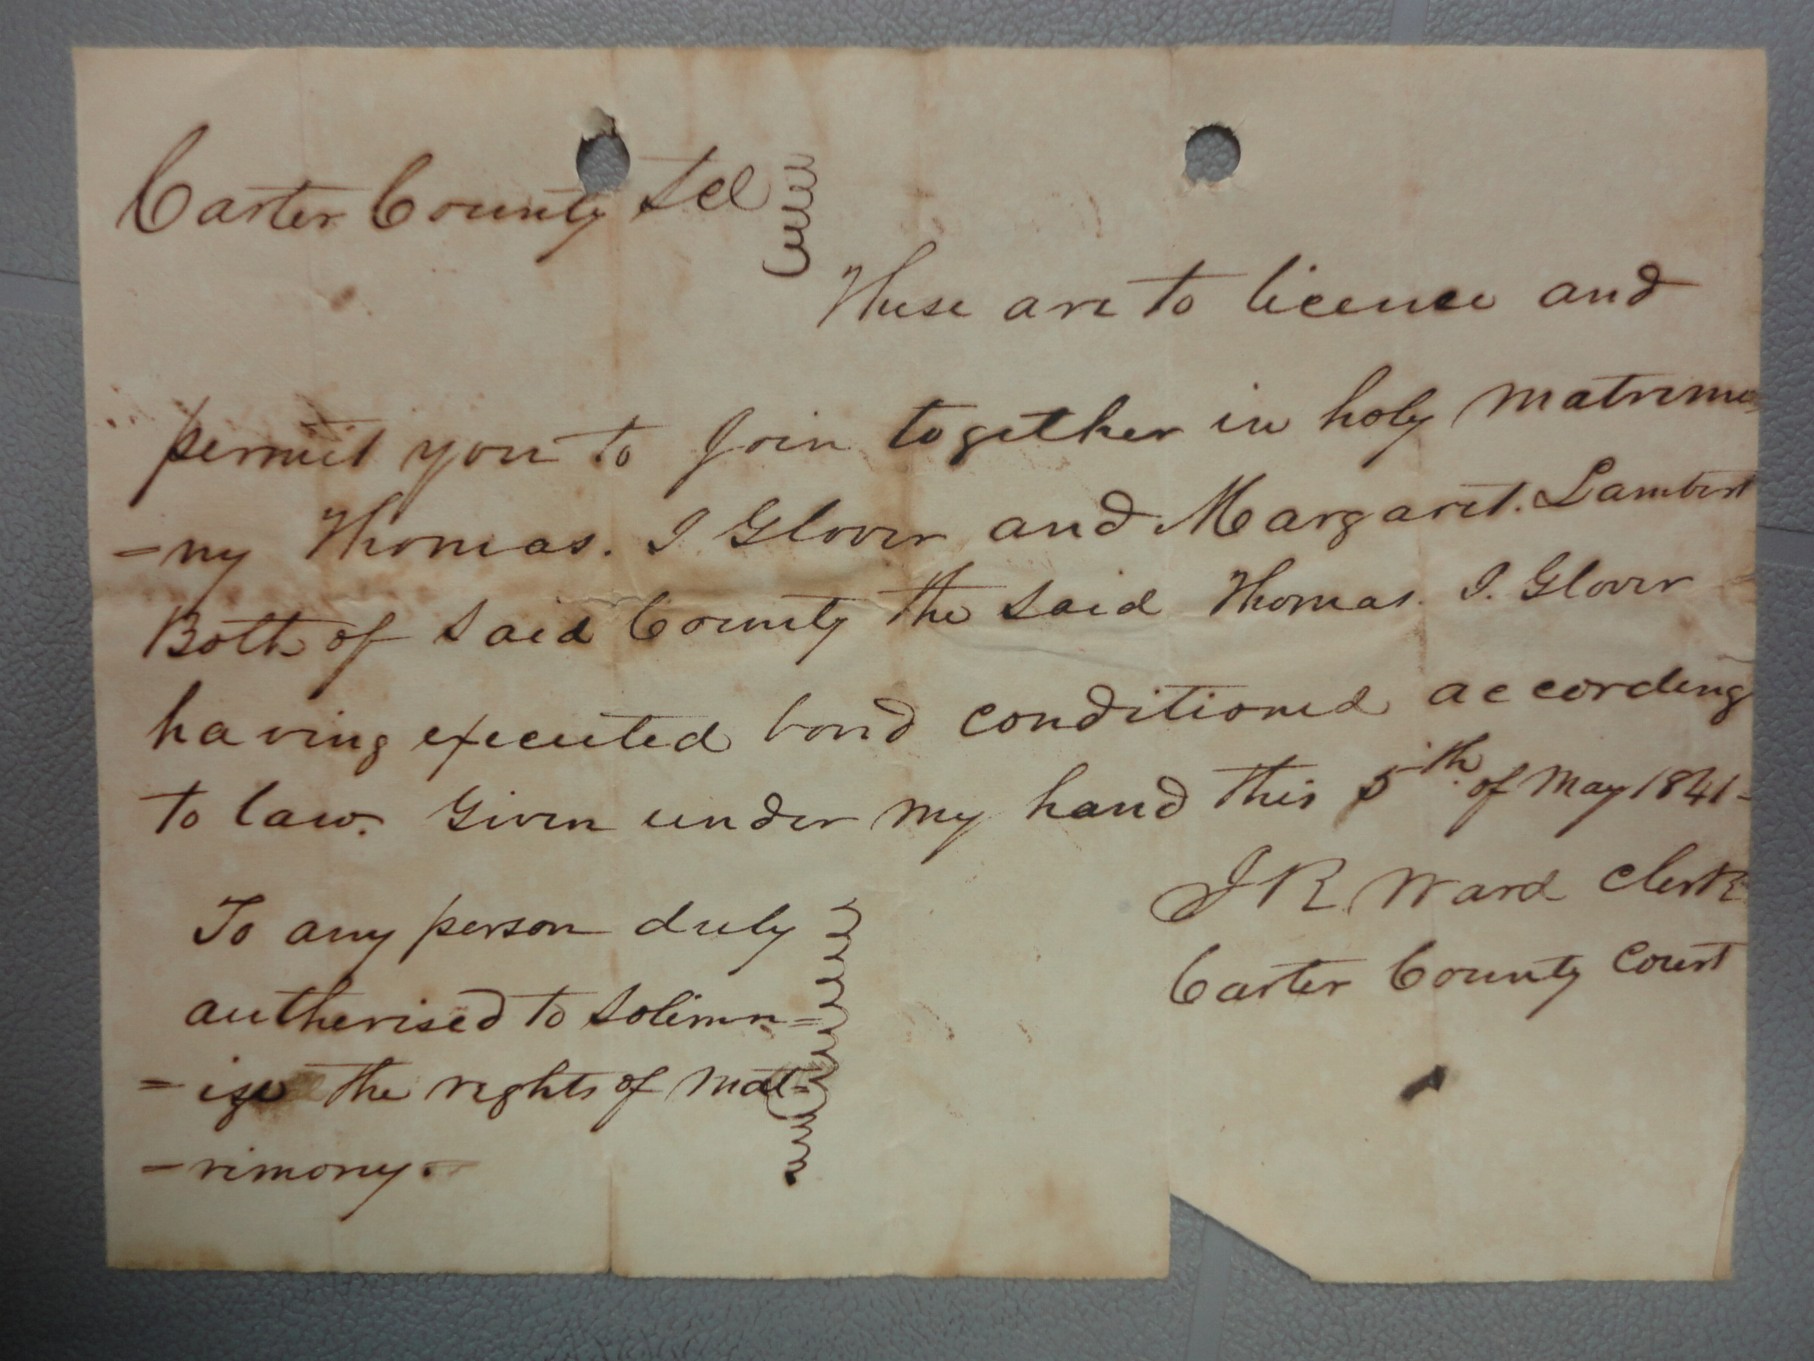 Carter County Scl
These are to licence and
permit you to Join together in holy matrimo
=ny Thomas. I Glover and Margaret. Lambert
Both of Said County the Said Thomas. I. Glover
having executed bond conditioned according
to law. Given under my hand this 5th of May 1841-
J R Ward Clerk
Carter County Court
To any person duly
autherised to Solemn=
=ize the rights of mat=
=rimony.